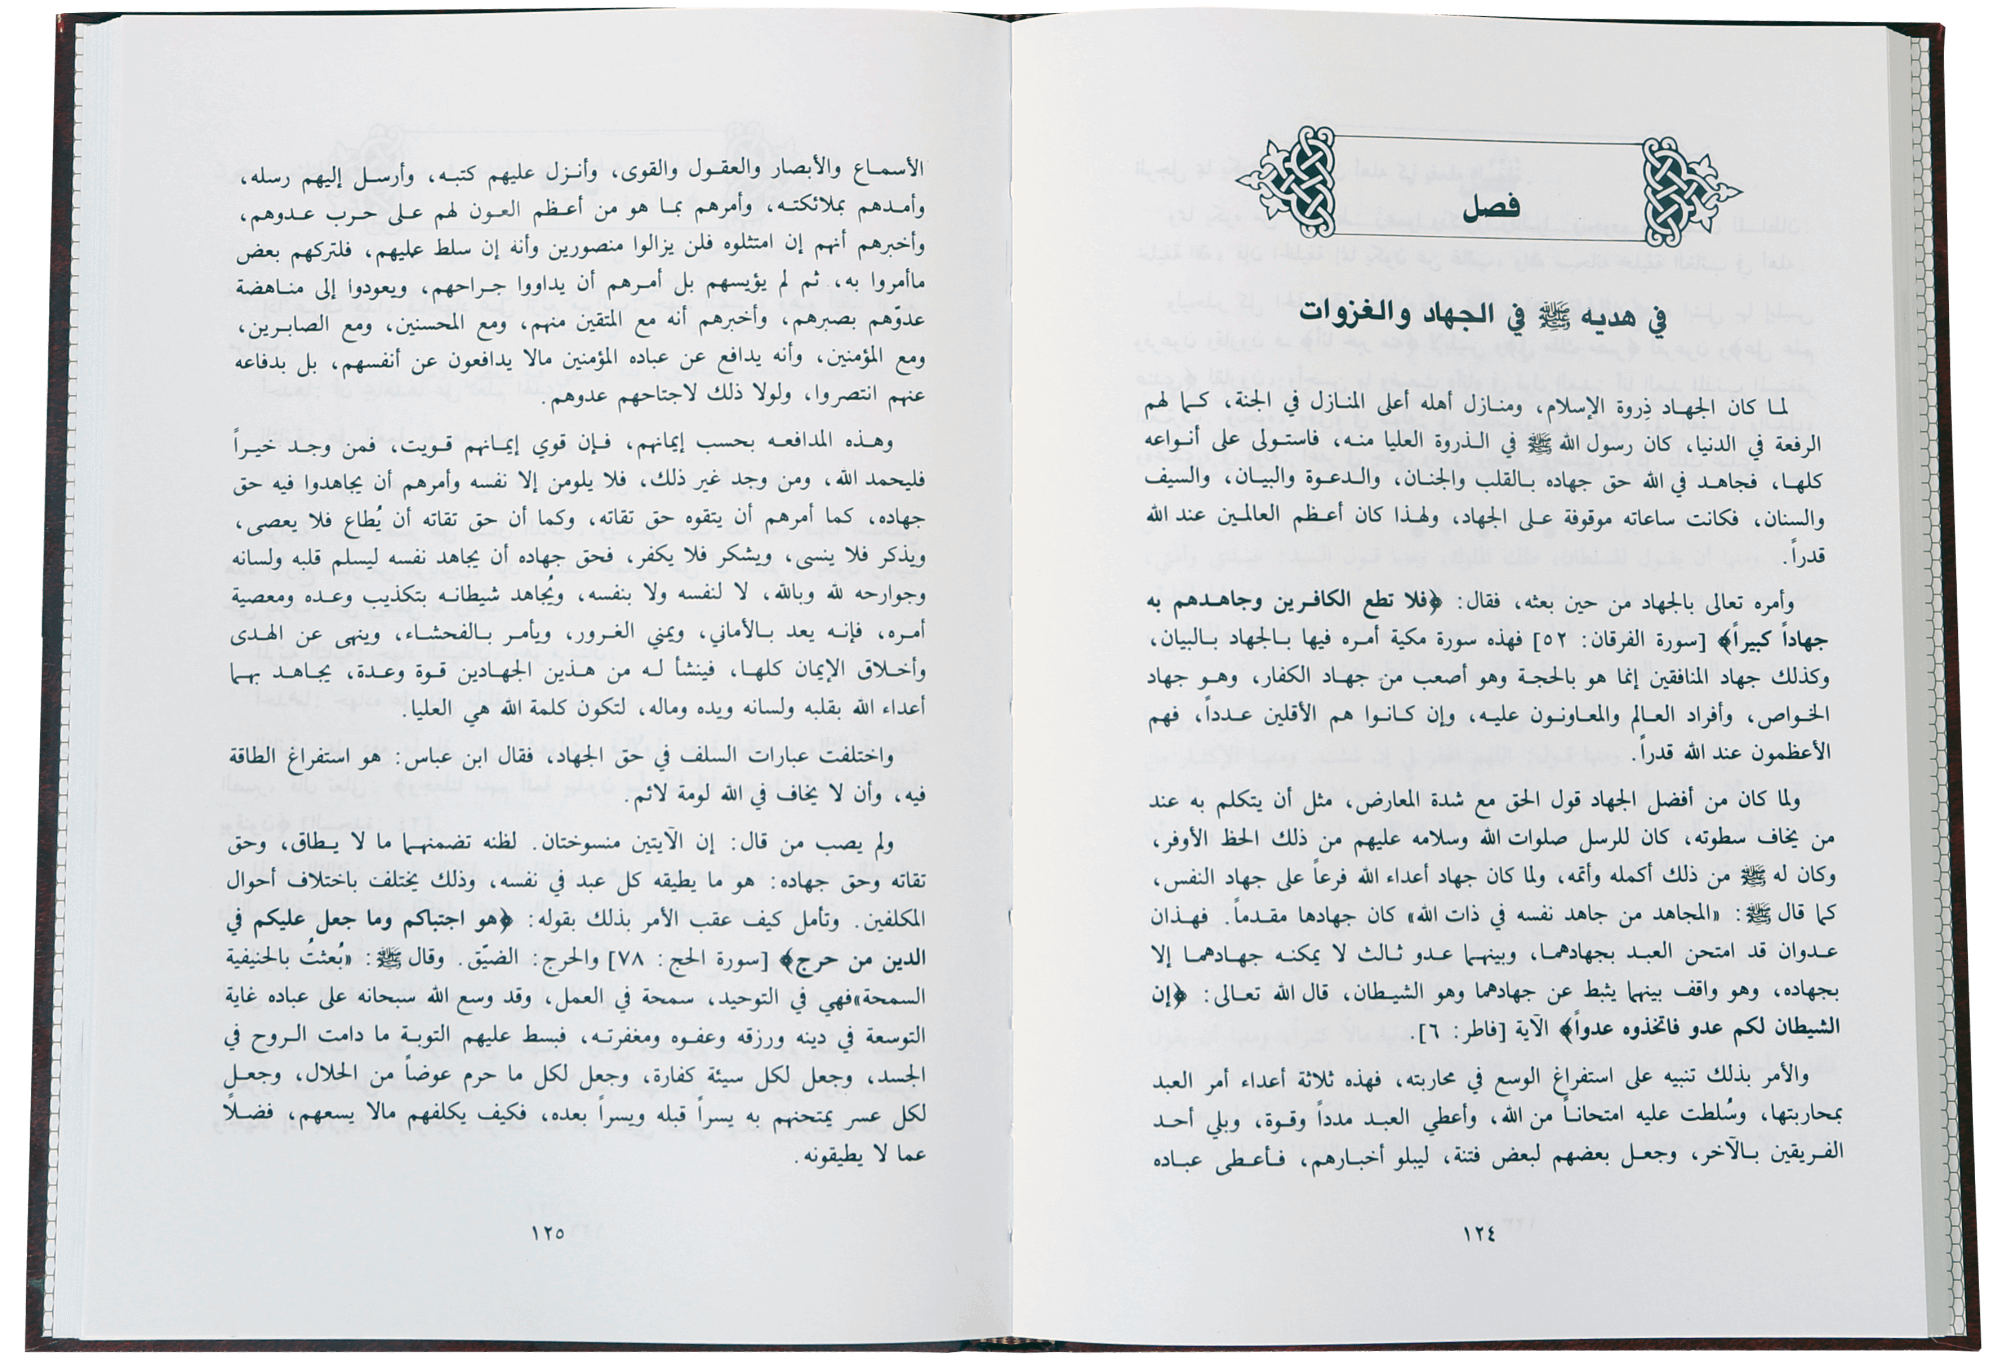 فصل
في هديه ﷺ في الجهاد والغزوات
لما كان الجهاد ذِروة الإسلام، ومنازل أهله أعلى المنازل في الجنة، كما لهم
الرفعة في الدنيا، كان رسول الله ﷺ في الذروة العليا منه، فاستولى على أنواعه
كلها، فجاهد في الله حق جهاده بالقلب والجنان، والدعوة والبيان، والسيف
والسنان، فكانت ساعاته موقوفة على الجهاد، ولهذا كان أعظم العالمين عند الله
قدراً.
وأمره تعالى بالجهاد من حين بعثه، فقال: ﴿فلا تطع الكافرين وجاهدهم به
جهاداً كبيراً﴾ [سورة الفرقان: ٥٢] فهذه سورة مكية أمره فيها بالجهاد بالبيان،
وكذلك جهاد المنافقين إنما هو بالحجة وهو أصعب من جهاد الكفار، وهو جهاد
الخواص، وأفراد العالم والمعاونون عليه، وإن كانوا هم الأقلين عدداً، فهم
الأعظمون عند الله قدراً.
ولما كان من أفضل الجهاد قول الحق مع شدة المعارض، مثل أن يتكلم به عند
من يخاف سطوته، كان للرسل صلوات الله وسلامه عليهم من ذلك الحظ الأوفر،
وكان له ﷺ من ذلك أكمله وأتمه، ولما كان جهاد أعداء الله فرعاً على جهاد النفس،
كما قال ﷺ: «المجاهد من جاهد نفسه في ذات الله» كان جهادها مقدماً. فهذان
عدوان قد امتحن العبد بجهادهما، وبينهما عدو ثالث لا يمكنه جهادهما إلا
بجهاده، وهو واقف بينهما يثبط عن جهادهما وهو الشيطان، قال الله تعالى: ﴿إن
الشيطان لكم عدو فاتخذوه عدواً﴾ الآية [فاطر: ٦].
والأمر بذلك تنبيه على استفراغ الوسع في محاربته، فهذه ثلاثة أعداء أمر العبد
بمحاربتها، وسُلطت عليه امتحاناً من الله، وأعطي العبد مدداً وقوة، وبلي أحد
الفريقين بالآخر، وجعل بعضهم لبعض فتنة، ليبلو أخبارهم، فأعطى عباده
١٢٤
الأسماع والأبصار والعقول والقوى، وأنزل عليهم كتبه، وأرسل إليهم رسله،
وأمدهم بملائكته، وأمرهم بما هو من أعظم العون لهم على حرب عدوهم،
وأخبرهم أنهم إن امتثلوه فلن يزالوا منصورين وأنه إن سلط عليهم، فلتركهم بعض
ماأمروا به، ثم لم يؤيسهم بل أمرهم أن يداووا جراحهم، ويعودوا إلى مناهضة
عدوّهم بصبرهم، وأخبرهم أنه مع المتقين منهم، ومع المحسنين، ومع الصابرين،
ومع المؤمنين، وأنه يدافع عن عباده المؤمنين مالا يدافعون عن أنفسهم، بل بدفاعه
عنهم انتصروا، ولولا ذلك لاجتاحهم عدوهم.
وهذه المدافعه بحسب إيمانهم، فإن قوي إيمانهم قويت، فمن وجد خيراً
فليحمد الله، ومن وجد غير ذلك، فلا يلومن إلا نفسه وأمرهم أن يجاهدوا فيه حق
جهاده، كما أمرهم أن يتقوه حق تقاته، وكما أن حق تقاته أن يُطاع فلا يعصى،
ويذكر فلا ينسى، ويشكر فلا يكفر، فحق جهاده أن يجاهد نفسه ليسلم قلبه ولسانه
وجوارحه لله وبالله، لا لنفسه ولا بنفسه، ويُجاهد شيطانه بتكذيب وعده ومعصية
أمره، فإنه يعد بالأماني، ويمني الغرور، ويأمر بالفحشاء، وينهى عن الهدى
وأخلاق الإيمان كلها، فينشأ له من هذين الجهادين قوة وعدة، يجاهد بهما
أعداء الله بقلبه ولسانه ويده وماله، لتكون كلمة الله هي العليا.
واختلفت عبارات السلف في حق الجهاد، فقال ابن عباس: هو استفراغ الطاقة
فيه، وأن لا يخاف في الله لومة لائم.
ولم يصب من قال: إن الآيتين منسوختان. لظنه تضمنهما ما لا يطاق، وحق
تقاته وحق جهاده: هو ما يطيقه كل عبد في نفسه، وذلك يختلف باختلاف أحوال
المكلفين. وتأمل كيف عقب الأمر بذلك بقوله: ﴿هو اجتباكم وما جعل عليكم في
الدين من حرج﴾ [سورة الحج: ٧٨] والحرج: الضيّق. وقال ﷺ: «بُعثتُ بالحنيفية
السمحة»فهي في التوحيد، سمحة في العمل، وقد وسع الله سبحانه على عباده غاية
التوسعة في دينه ورزقه وعفوه ومغفرته، فبسط عليهم التوبة ما دامت الروح في
الجسد، وجعل لكل سيئة كفارة، وجعل لكل ما حرم عوضاً من الحلال، وجعل
لكل عسر يمتحنهم به يسراً قبله ويسراً بعده، فكيف يكلفهم مالا يسعهم، فضلاً
عما لا يطيقونه.
١٢٥